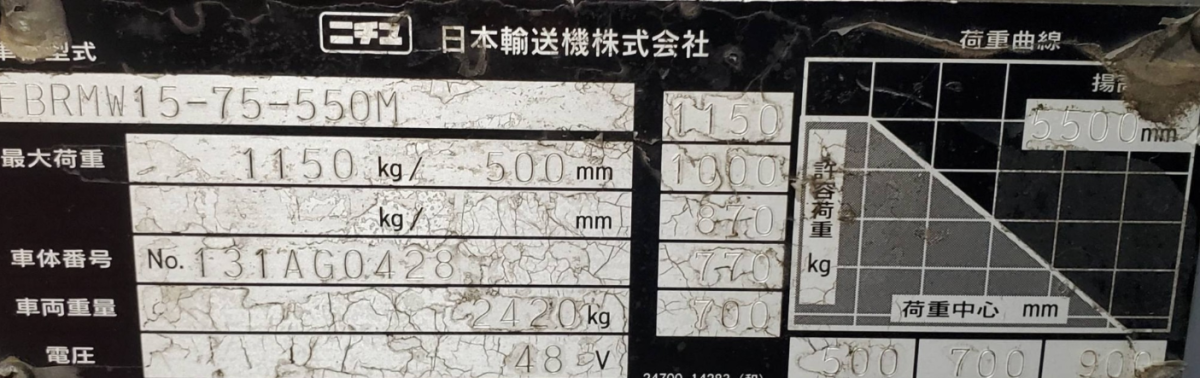 ニチユ 日本輸送機株式会社
荷重曲線
型式 FBRMW15-75-550M
最大荷重 1150 kg/ 500 mm
kg/ mm
車体番号 No. 131AG0428
車両重量 2420 kg
電圧 48 V
1150
1000
870
770
700
揚
5500 mm
許容荷重
kg
荷重中心 mm
500 700